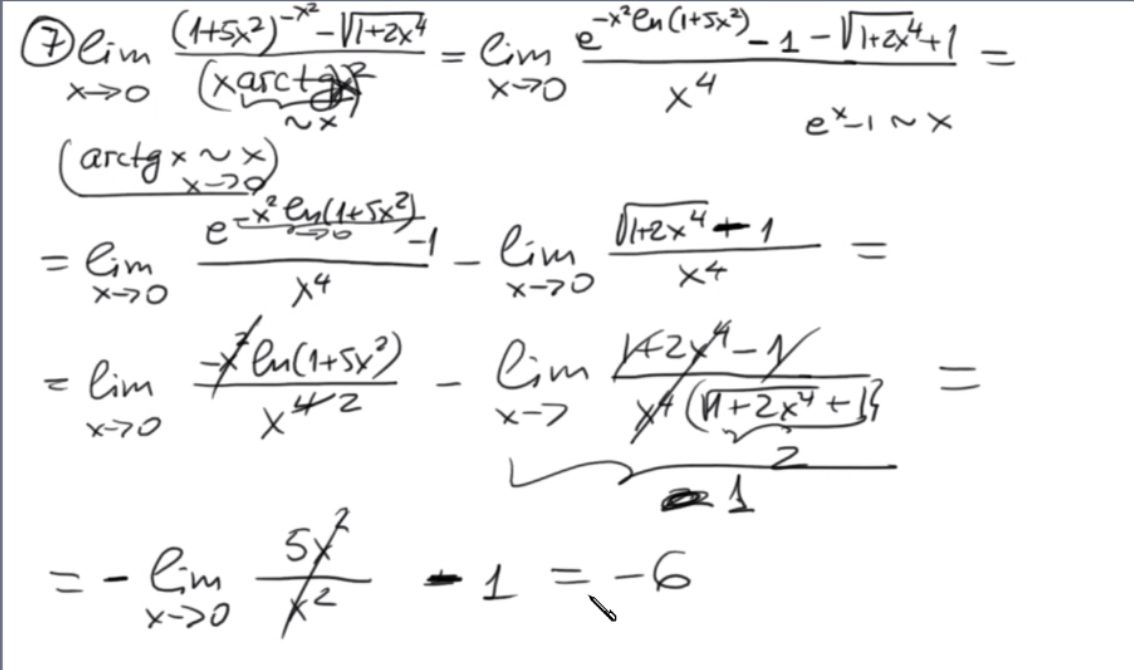 ⑦ lim x→0 ((1+5x²)^(-x²) - √(1+2x⁴)) / (x arctg x)² = lim x→0 (e^(-x² ln(1+5x²)) - 1 - √(1+2x⁴) + 1) / x⁴ =
~x
eˣ-1 ~ x
(arctg x ~ x x→0)
= lim x→0 (e^(-x² ln(1+5x²)) - 1) / x⁴ - lim x→0 (√(1+2x⁴) - 1) / x⁴ =
→0
= lim x→0 (-x² ln(1+5x²)) / x⁴ 2 - lim x→ (1+2x⁴-1) / (x⁴(√(1+2x⁴)+1)) =
2
1
= - lim x→0 5x² / x² - 1 = -6